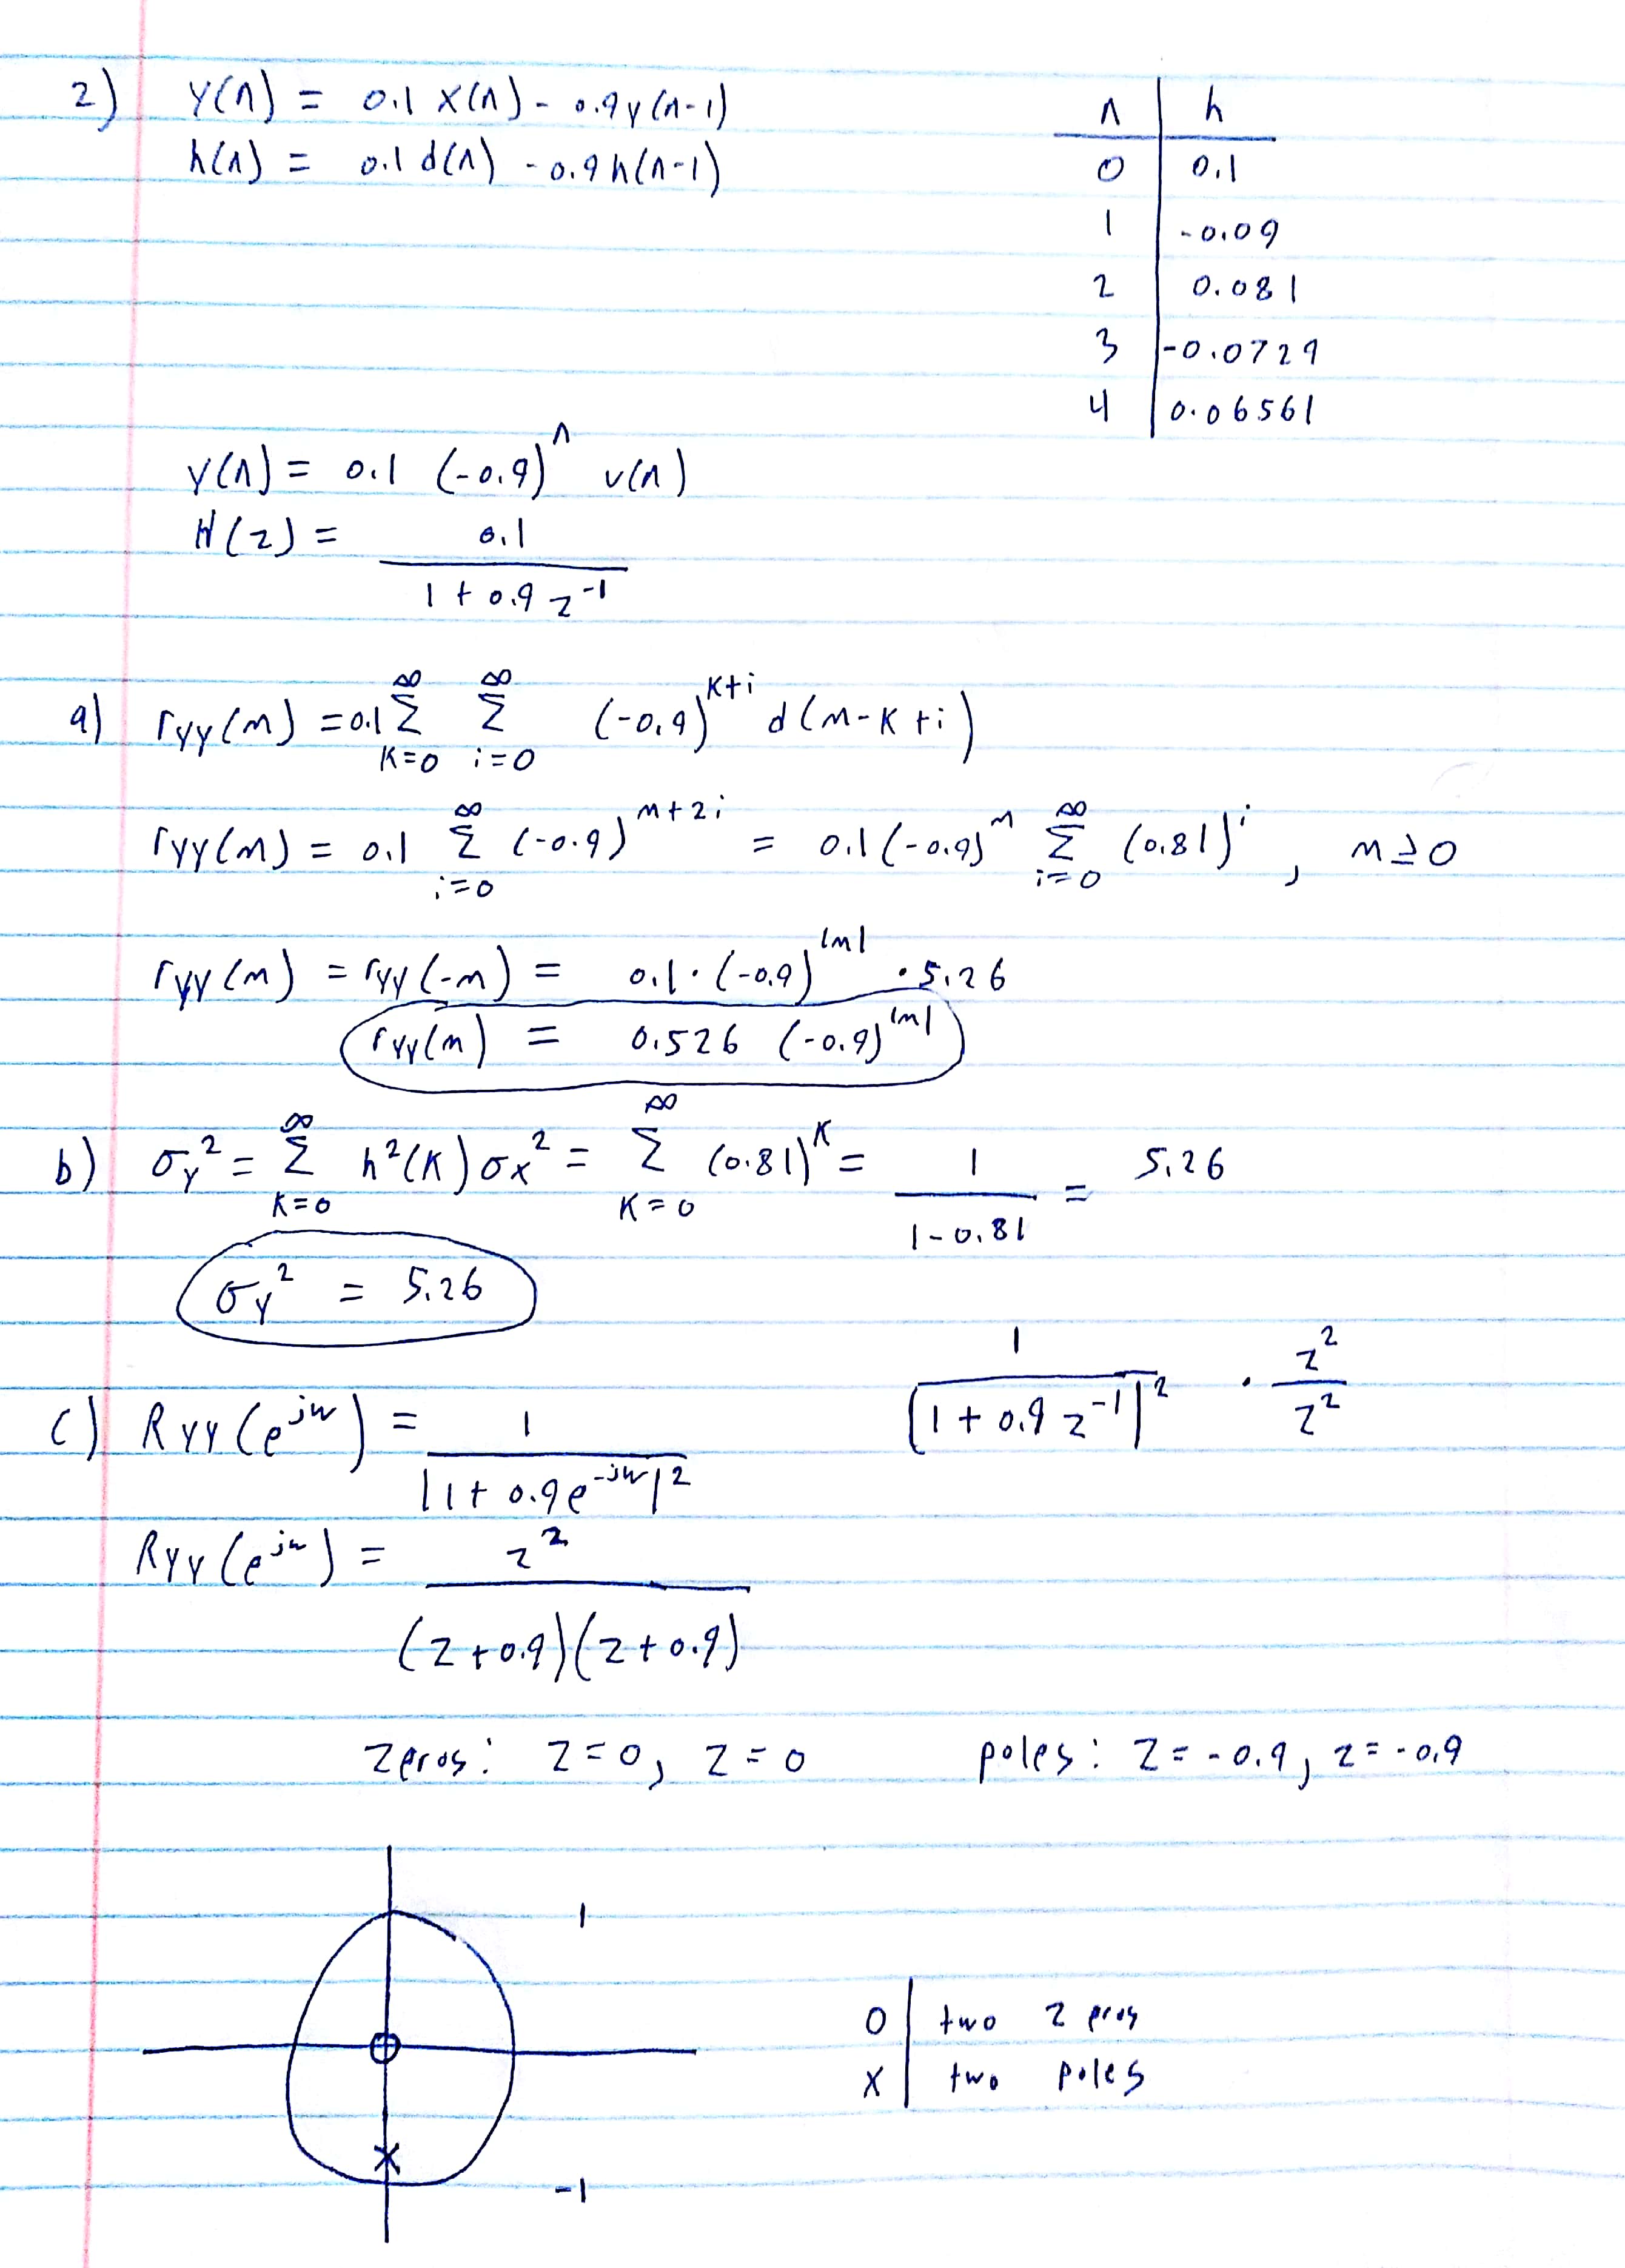 2) y(n) = 0.1 x(n) - 0.9y(n-1)
h(n) = 0.1 d(n) - 0.9 h(n-1)
n | h
0 | 0.1
1 | -0.09
2 | 0.081
3 | -0.0729
4 | 0.06561
y(n) = 0.1 (-0.9)^n u(n)
H(z) = 0.1 / (1 + 0.9 z^-1)
a) ryy(m) = 0.1 Σ_{K=0}^{∞} Σ_{i=0}^{∞} (-0.9)^{K+i} d(m-K+i)
ryy(m) = 0.1 Σ_{i=0}^{∞} (-0.9)^{m+2i} = 0.1(-0.9)^m Σ_{i=0}^{∞} (0.81)^i , m ≥ 0
ryy(m) = ryy(-m) = 0.1 · (-0.9)^{|m|} · 5.26
ryy(m) = 0.526 (-0.9)^{|m|}
b) σy² = Σ_{K=0}^{∞} h²(K) σx² = Σ_{K=0}^{∞} (0.81)^K = 1 / (1-0.81) = 5.26
σy² = 5.26
c) Ryy(e^{jw}) = 1 / |1 + 0.9e^{-jw}|²
1 / |1 + 0.9 z^-1|² · z² / z²
Ryy(e^{jw}) = z² / (z+0.9)(z+0.9)
zeros: z=0, z=0 poles: z = -0.9, z = -0.9
1
O | two zeros
X | two poles
-1